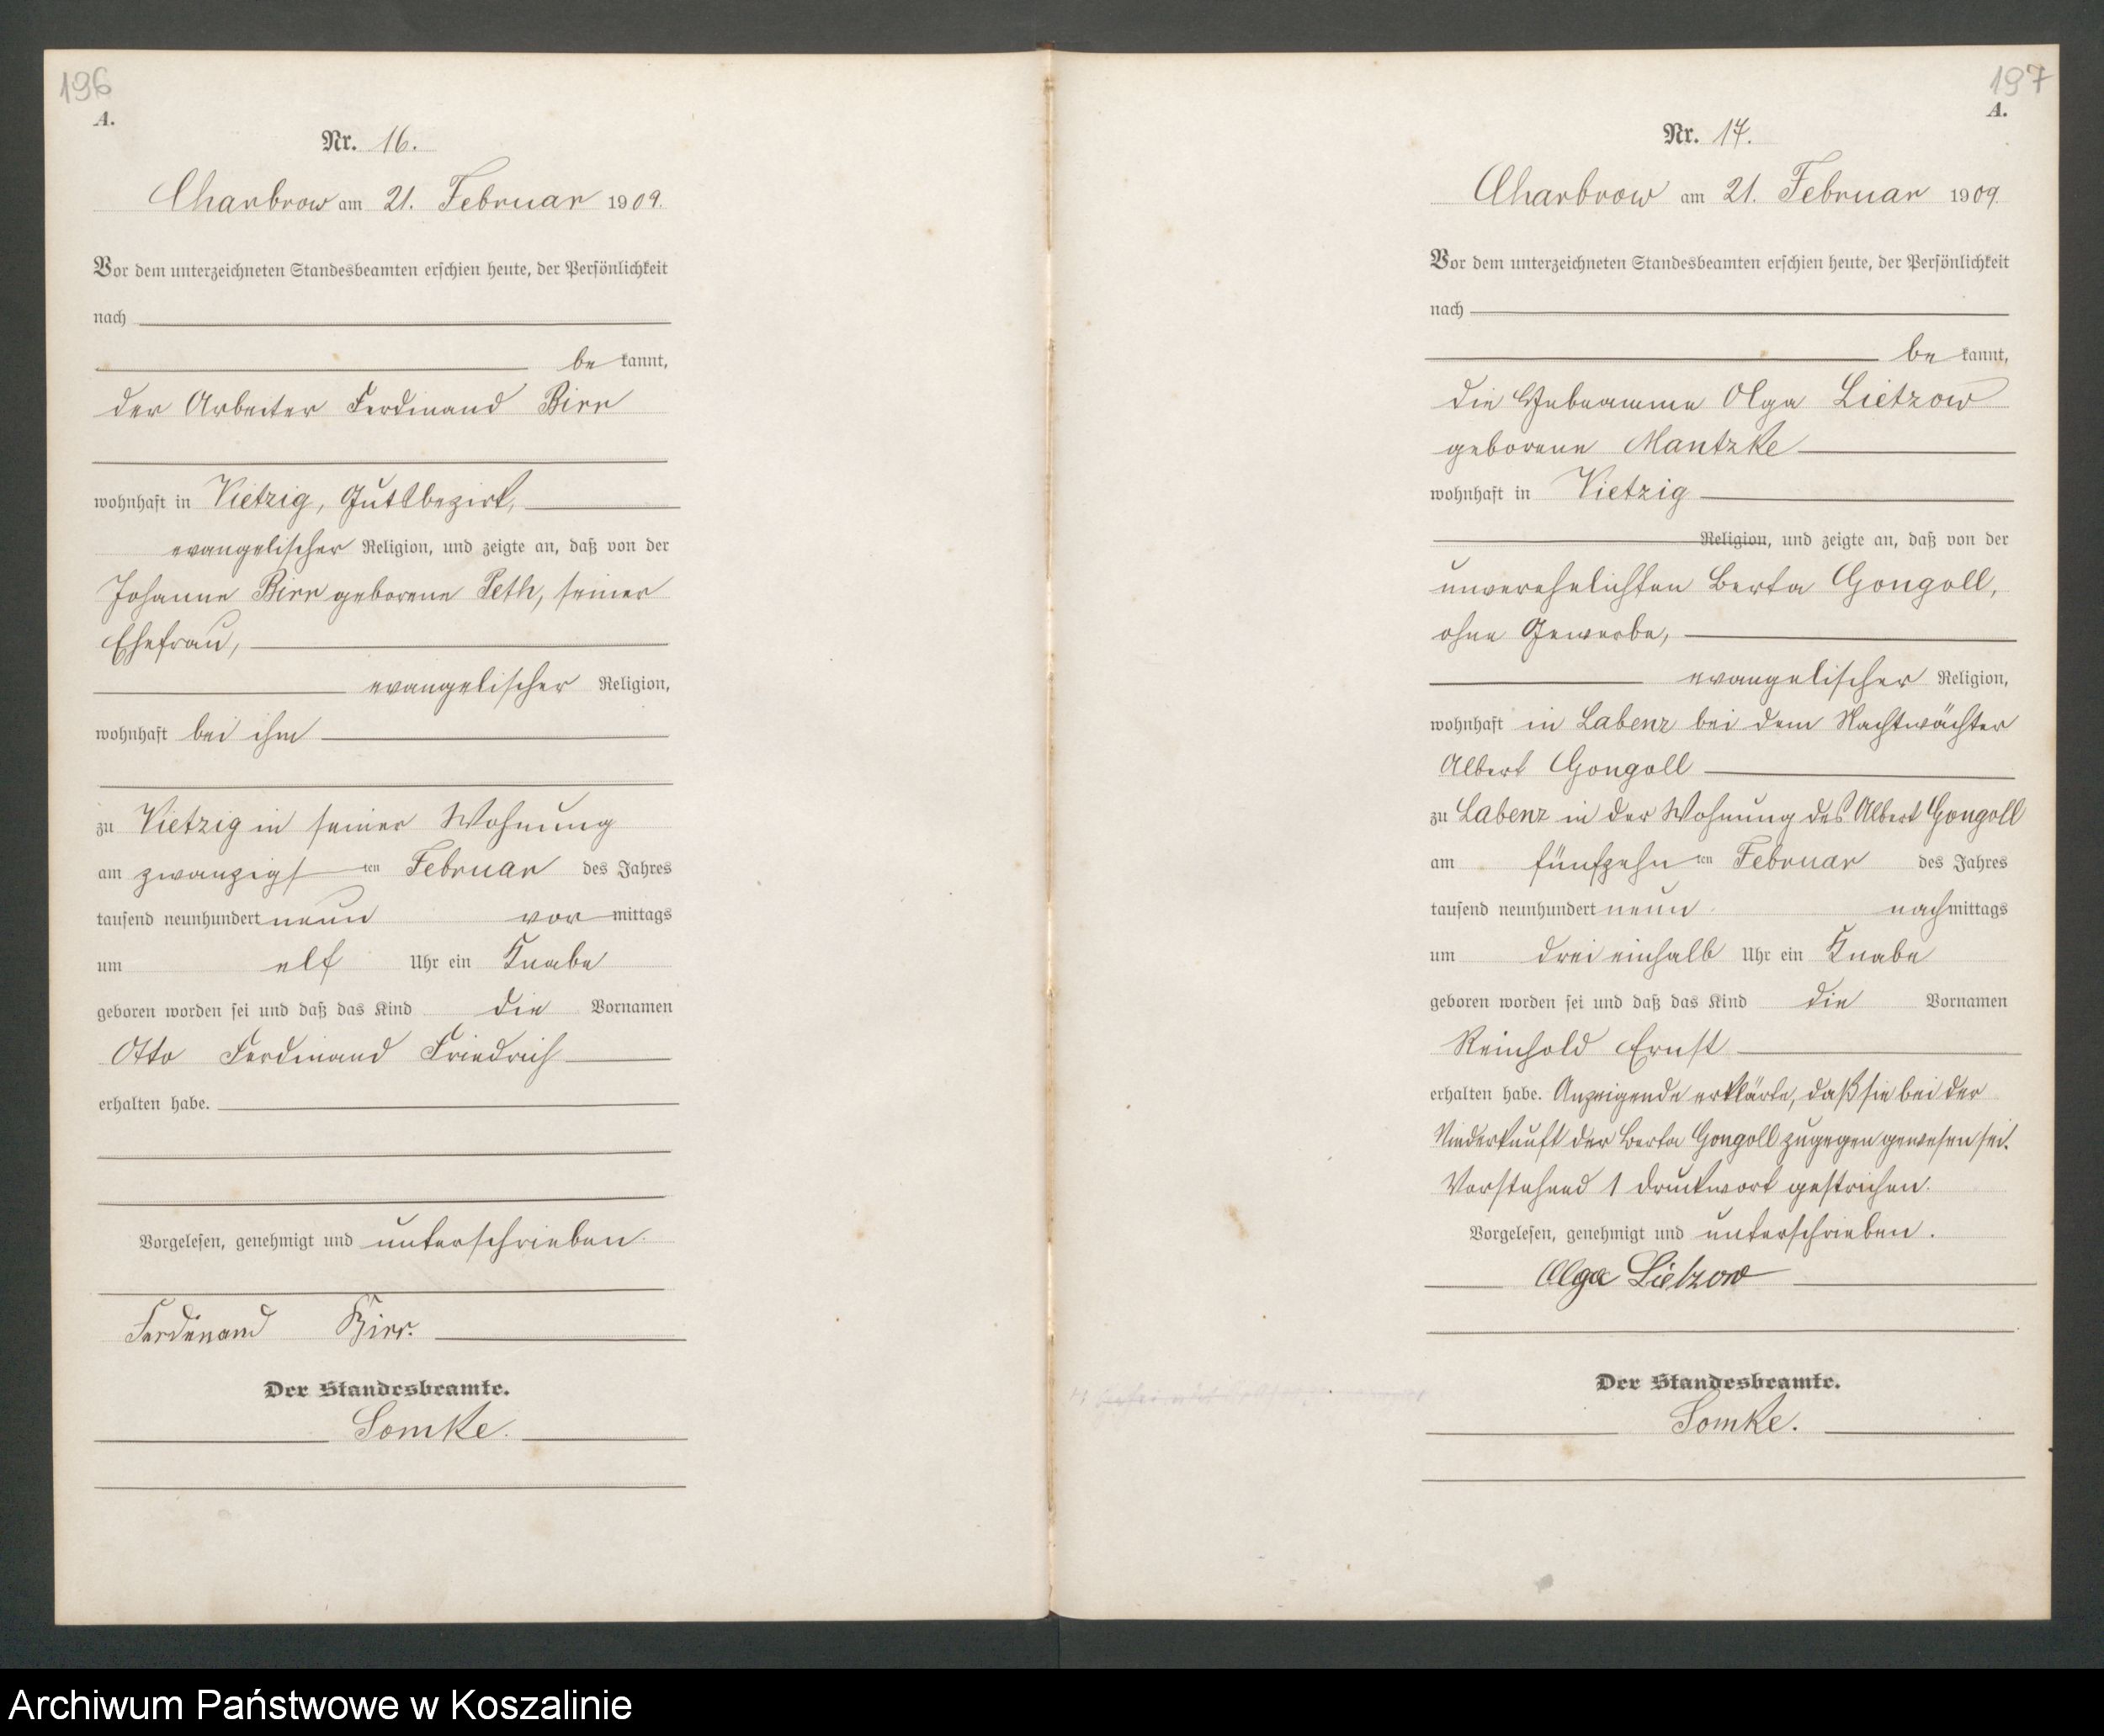 196
A.
Nr. 16.
Charbrow am 21. Februar 1909.
Vor dem unterzeichneten Standesbeamten erschien heute, der Persönlichkeit
nach
be kannt,
der Arbeiter Ferdinand Birr
wohnhaft in Vietzig, Gutsbezirk,
evangelischer Religion, und zeigte an, daß von der
Johanne Birr geborene Peth, seiner
Ehefrau,
evangelischer Religion,
wohnhaft bei ihm
zu Vietzig in seiner Wohnung
am zwanzigsten Februar des Jahres
tausend neunhundert neun vor mittags
um elf Uhr ein Knabe
geboren worden sei und daß das Kind die Vornamen
Otto Ferdinand Friedrich
erhalten habe.
Vorgelesen, genehmigt und unterschrieben.
Ferdinand Birr.
Der Standesbeamte.
Somke.
197
A.
Nr. 17.
Charbrow am 21. Februar 1909.
Vor dem unterzeichneten Standesbeamten erschien heute, der Persönlichkeit
nach
be kannt,
die Hebamme Olga Lietzow
geborene Mantzke
wohnhaft in Vietzig
Religion, und zeigte an, daß von der
unverehelichten Berta Gongoll,
ohne Gewerbe,
evangelischer Religion,
wohnhaft in Labenz bei dem Nachtwächter
Albert Gongoll
zu Labenz in der Wohnung des Albert Gongoll
am fünfzehnten Februar des Jahres
tausend neunhundert neun nachmittags
um drei einhalb Uhr ein Knabe
geboren worden sei und daß das Kind die Vornamen
Reinhold Ernst
erhalten habe. Anzeigende erklärte, daß sie bei der
Niederkunft der Berta Gongoll zugegen gewesen sei.
Vorstehend 1 Druckwort gestrichen.
Vorgelesen, genehmigt und unterschrieben.
Olga Lietzow
Der Standesbeamte.
Somke.
Archiwum Państwowe w Koszalinie